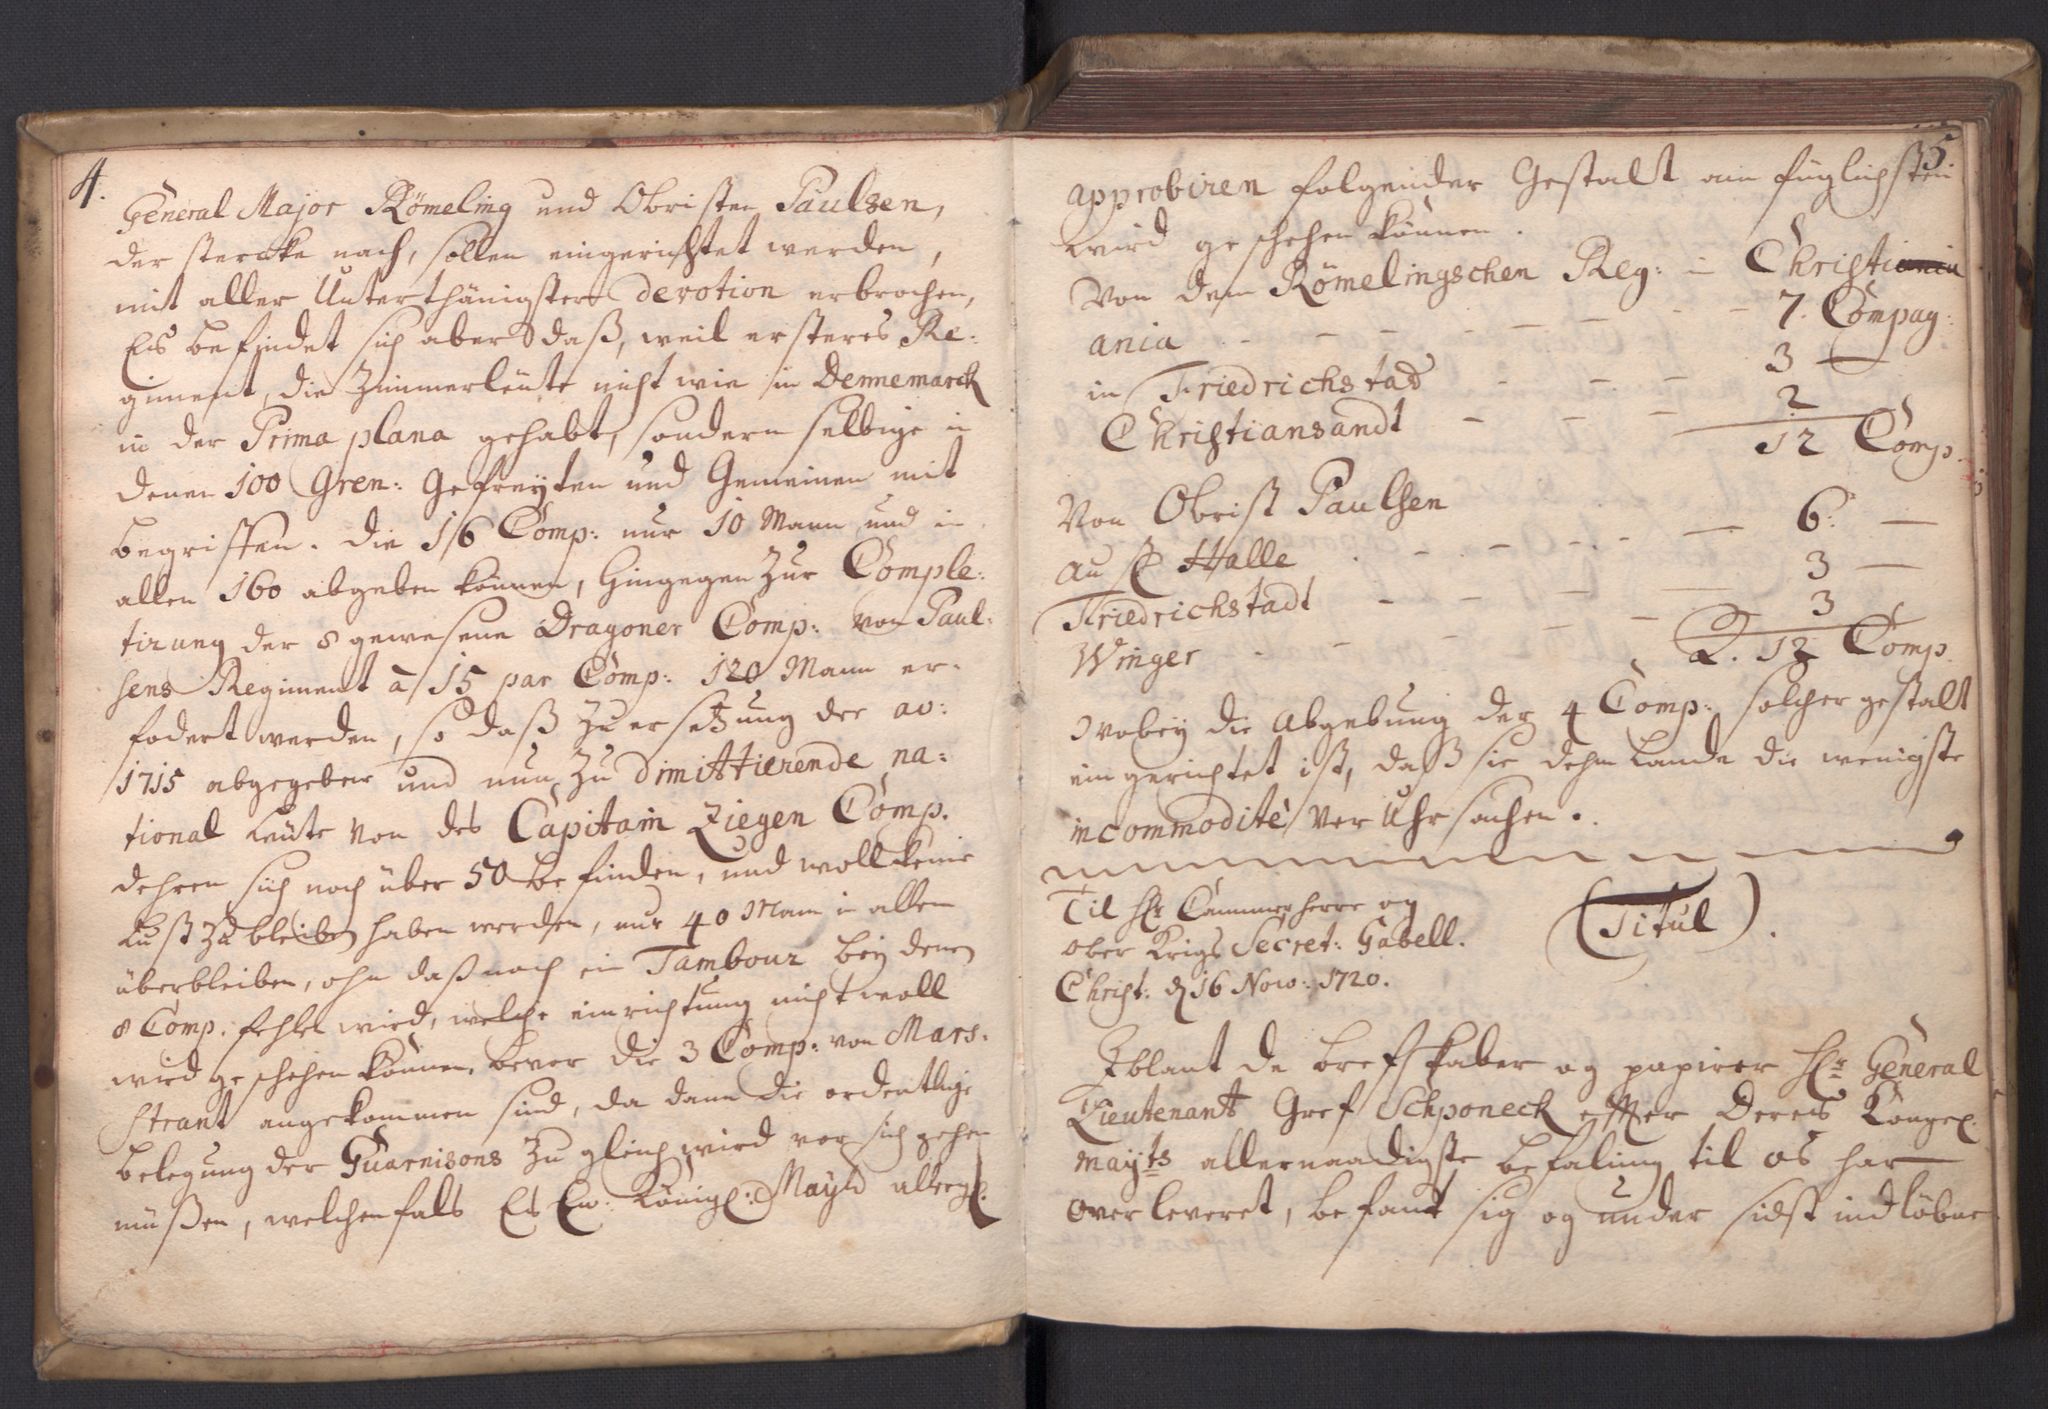 4.
General Major Römeling und Obristen Paulsen,
der stercke nach, sollen eingerichtet werden,
mit aller Unterthänigster devotion erbrochen,
Es befindet sich aber daß, weil ersteres Re:
giment, die Zimmerleüte nicht wie in Dennemarck
in der Prima plana gehabt, sondern selbige in
denen 100 Gren: Gefreyten und Gemeinen mit
begriffen. die 16 Comp: nur 10 Mann und in
allen 160 abgeben können, hingegen zur Comple:
tirung der 8 gewesene Dragoner Comp: von Paul:
sens Regiment à 15 par Comp: 120 Mann er-
fodert werden, so daß zu ersetzung der ao:
1715 abgegeben und nun zu dimittierende na:
tional Leüte von des Capitain Ziegen Comp.
dehren sich noch über 50 befinden, und woll keine
Lust zu bleiben haben werden, nur 40 Mann in allen
überbleiben, ohn daß noch ein Tambour bey denen
8 Comp. fehlen wird, welche einrichtung nicht woll
wird geschehen können, bevor die 3 Comp: von Mars:
strant angekommen sind, da dann die ordentliche
belegung der Guarnisons zu gleich wird vor sich gehen
müßen, welchenfals Es Ew: Königl: Mayts allergl.
5.
approbiren folgender Gestalt am füglichsten
wird geschehen können.
Von dem Römelingschen Reg: in Christi
ania - - - - - - - 7. Compag:
in Friedrichstad - - - 3 —
Christiansandt - - - 2
12 Comp.
Von Obrist Paulsen
auf Halle - - - - - 6. —
Friedrichstadt - - - 3 —
Winger - - - - 3
12 Comp.
wobey die Abgebung der 4 Comp: solcher gestalt
eingerichtet ist, daß sie dehm Lande die wenigste
incommoditè verUhrsachen.
Til Hr Cammerherre og
ober Krigs Secret: Gabell. (Titul).
Christ: d 16 Nov: 1720.
Iblant de brefskaber og papirer Hr General
Lieutenant Gref Schponeck efter Deres Kongel.
Mayts allernaadigste befaling til os har
overleveret, befant sig og under sidst indløbne